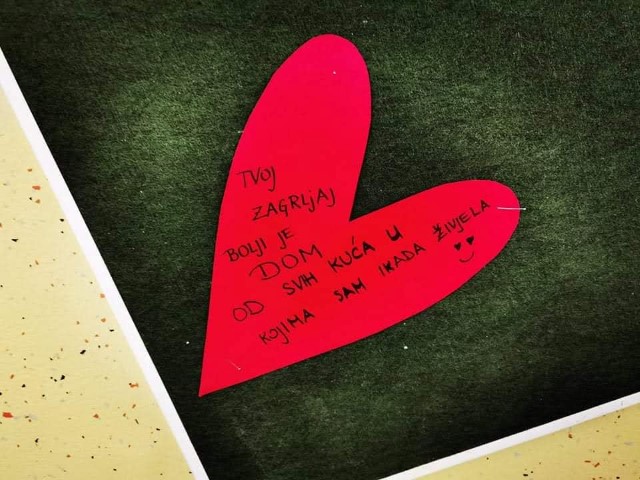 TVOJ
ZAGRLJAJ
BOLJI JE
DOM
OD SVIH KUĆA U
KOJIMA SAM IKADA ŽIVJELA